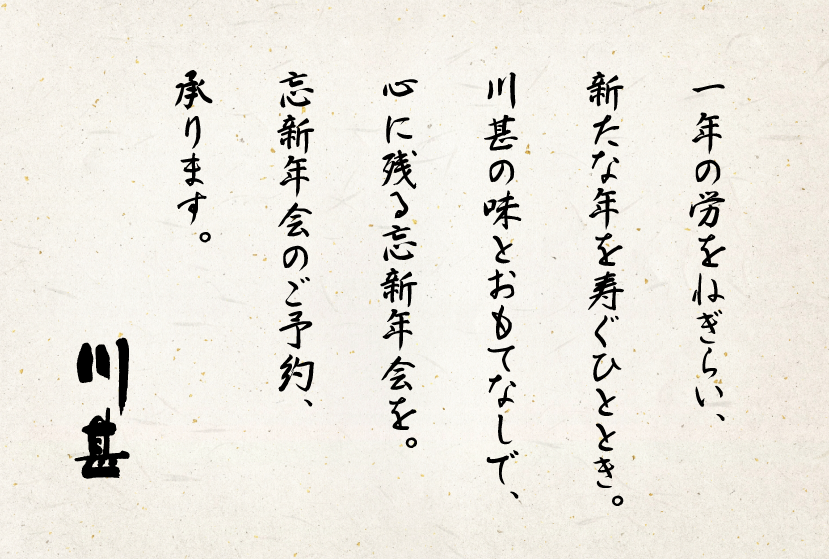 一年の労をねぎらい、
新たな年を寿ぐひととき。
川甚の味とおもてなしで、
心に残る忘新年会を。
忘新年会のご予約、
承ります。
川甚